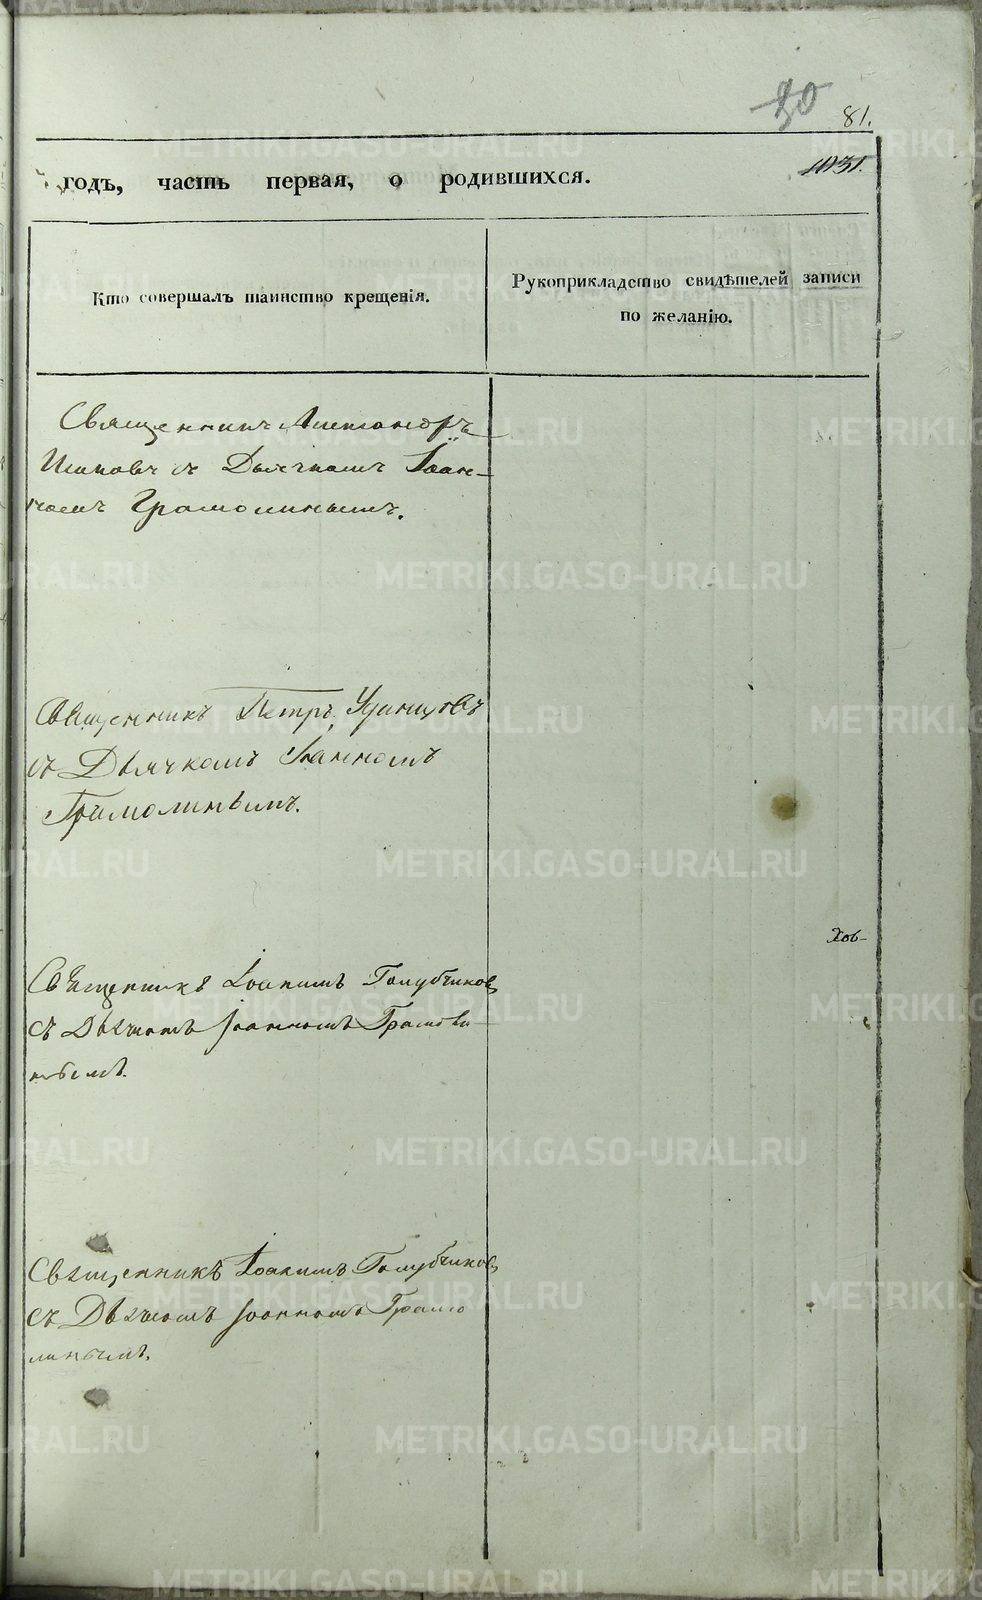 80
81.
1031.
годъ, часть первая, о родившихся.
Кто совершалъ таинство крещенія.
Рукоприкладство свидѣтелей записи
по желанію.
Священникъ Александръ
съ Дьячкомъ Іоан-
номъ Грамолинымъ.
Священникъ Петръ Удинцовъ
съ Дьячкомъ Іоанномъ
Грамолинымъ.
Священникъ Іоакимъ Голубчиковъ
съ Дьячкомъ Іоанномъ Грамоли-
нымъ.
Священникъ Іоакимъ Голубчиковъ
съ Дьячкомъ Іоанномъ Грамо
линымъ.
METRIKI.GASO-URAL.RU